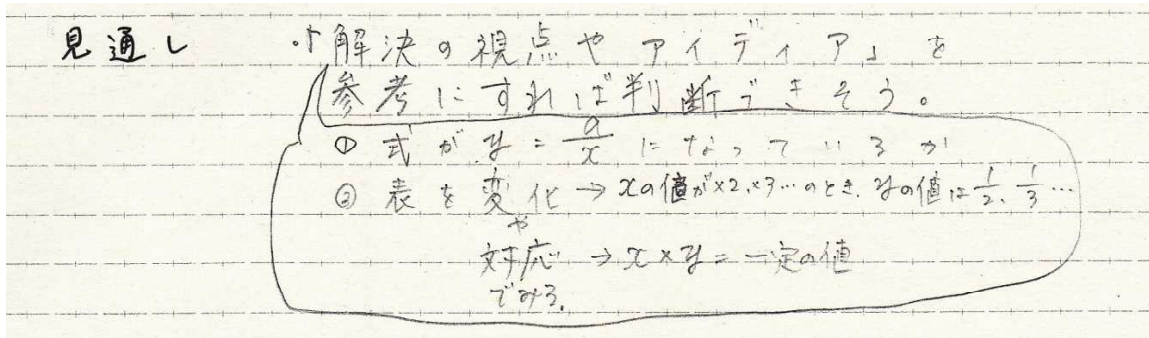 見通し ・「解決の視点やアイディア」を
参考にすれば判断できそう。
① 式が y = a/x になっているか
② 表を変化 → xの値が×2, ×3…のとき、yの値は 1/2, 1/3 …
や
対応 → x × y = 一定の値
でみる。